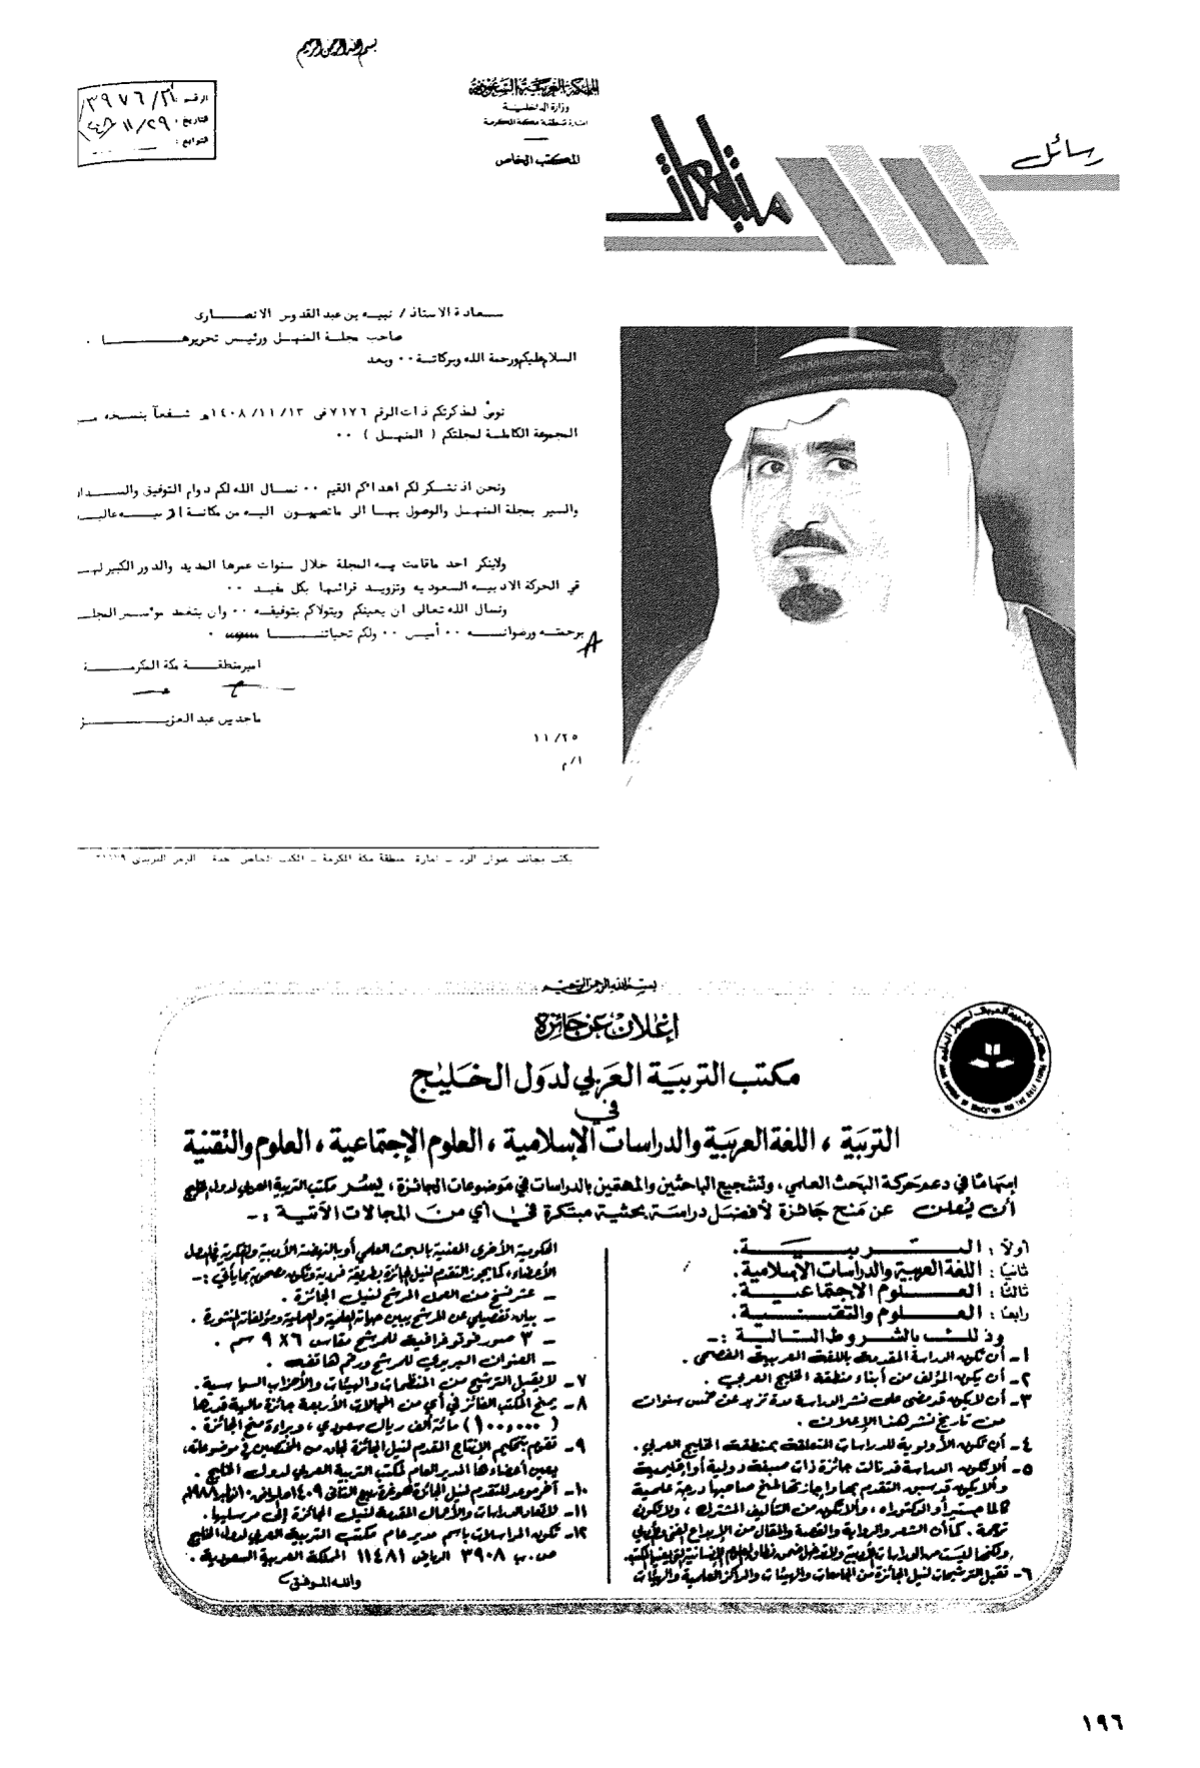 رسائل
متابعات
بسم الله الرحمن الرحيم
المملكة العربية السعودية
وزارة الداخلية
امارة منطقة مكة المكرمة
المكتب الخاص
الرقم :
التاريخ :
التوابع :
سعادة الاستاذ / نبيه بن عبد القدوس الانصارى
صاحب مجلة المنهل ورئيس تحريرها .
السلام عليكم ورحمة الله وبركاتة ٠٠ وبعد
لمذكرتكم ذات الرقم ٧١٧٦ فى ١٣ /١١ /١٤٠٨هـ شفعاً بنسخه
المجموعة الكاملة لمجلتكم ( المنهل ) ٠٠
ونحن اذ نشكر لكم اهدائكم القيم ٠٠ نسال الله لكم دوام التوفيق
والسير بمجلة المنهل والوصول بها الى ماتصبون اليه من مكانة
ولاينكر احد ماقامت به المجلة خلال سنوات عمرها المديد والدور الكبير
في الحركة الادبيه السعوديه وتزويد قرائها بكل مفيد ٠٠
ونسال الله تعالى ان يعينكم ويتولاكم بتوفيقه ٠٠ وان يتغمد
برحمته ورضوانه ٠٠ أمين ٠٠ ولكم تحياتنا
امير منطقة مكة المكرمة
ماجد بن عبد العزيز
١١/٢٥
م/١
يكتب بجانب عنوان الرد – امارة منطقة مكة المكرمة – المكتب الخاص جدة الرمز البريدى
بسم الله الرحمن الرحيم
إعلان عن جائزة
مكتب التربية العربي لدول الخليج
في
التربية ، اللغة العربية والدراسات الإسلامية ، العلوم الإجتماعية ، العلوم والتقنية
إسهامًا في دعم حركة البحث العلمي ، وتشجيع الباحثين والمهتمين بالدراسات في موضوعات الجائزة ، يسُر مكتب التربية العربي لدول الخليج
أن يُعلن عن منح جائزة لأفضل دراسة بحثية مبتكرة في أي من المجالات الآتية :-
أولاً : التربية .
ثانيًا : اللغة العربية والدراسات الإسلامية .
ثالثًا : العلوم الاجتماعية .
رابعًا : العلوم والتقنية .
وذلك بالشروط التالية :-
١- أن تكون الدراسة المقدمة باللغة العربية الفصحى .
٢- أن يكون المؤلف من أبناء منطقة الخليج العربي .
٣- أن لا يكون قد مضى على نشر الدراسة مدة تزيد عن خمس سنوات
من تاريخ نشر هذا الإعلان .
٤- أن تكون الأولوية للدراسات المتعلقة بمنطقة الخليج العربي .
٥- ألا تكون الدراسة قد نالت جائزة ذات صبغة دولية أو إقليمية
وألا يكون قد سبق التقدم بها وإجازتها لمنح صاحبها درجة علمية
كالماجستير أو الدكتوراه ، وألا تكون من التأليف المشترك ، ولا تكون
ترجمة . كما أن الشعر والرواية والقصة والمقال من الإبداع الفني
٦- تقبل الترشيحات لنيل الجائزة من الجامعات والهيئات والمراكز العلمية والهيئات
الحكومية الأخرى المعنية بالبحث العلمي أو بالنهضة الأدبية والفكرية في الدول
الأعضاء ، كما يجوز التقدم لنيل الجائزة بطريقة فردية وتكون مصحوبة بما يأتي :-
– عشر نسخ من العمل المرشح لنيل الجائزة .
– بيان تفصيلي عن المرشح يبين حياته العلمية والعملية ومؤلفاته المنشورة .
– ٣ صور فوتوغرافية للمرشح مقاس ٦×٩ سم .
– العنوان البريدي للمرشح ورقم هاتفه .
٧- لا يقبل الترشيح من المنظمات والهيئات والأحزاب السياسية .
٨- يمنح المكتب الفائز في أي من المجالات الأربعة جائزة مالية قدرها
(١٠٠٠٠٠) مائة ألف ريال سعودي ، وبراءة منح الجائزة .
٩- تقوم بتحكيم الإنتاج المقدم لنيل الجائزة لجان من المختصين في موضوعاته ،
يعين أعضاءها المدير العام لمكتب التربية العربي لدول الخليج .
١٠- آخر موعد للتقدم لنيل الجائزة هو غرة ربيع الثاني ١٤٠٩هـ الموافق ١٠ نوفمبر ١٩٨٨م
١١- لا تعاد الدراسات والأعمال المقدمة لنيل الجائزة إلى مرسليها .
١٢- تكون المراسلات باسم مدير عام مكتب التربية العربي لدول الخليج
ص.ب ٣٩٠٨ الرياض ١١٤٨١ المملكة العربية السعودية .
والله الموفق
١٩٦